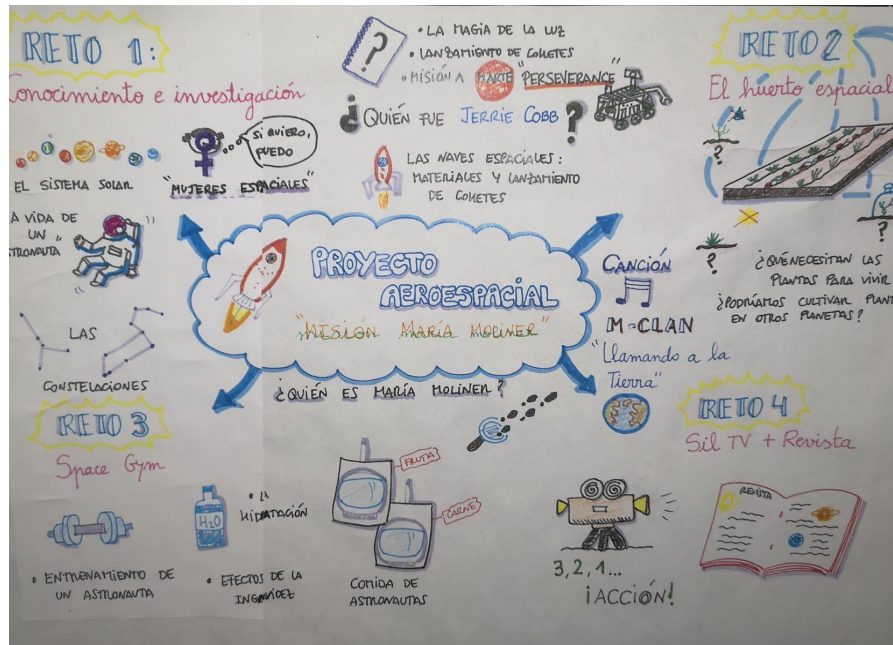 RETO 1:
Conocimiento e investigación
EL SISTEMA SOLAR
SI QUIERO,
PUEDO
"MUJERES ESPACIALES"
LA VIDA DE
UN
ASTRONAUTA"
LAS
CONSTELACIONES
?
• LA MAGIA DE LA LUZ
• LANZAMIENTO DE COHETES
• MISIÓN A MARTE "PERSEVERANCE"
¿QUIÉN FUE JERRIE COBB?
LAS NAVES ESPACIALES:
MATERIALES Y LANZAMIENTO
DE COHETES
RETO 2
El huerto espacial
?
?
?
¿QUÉ NECESITAN LAS
PLANTAS PARA VIVIR
¿PODRÍAMOS CULTIVAR PLANT
EN OTROS PLANETAS?
PROYECTO
AEROESPACIAL
"MISIÓN MARÍA MOLINER"
CANCIÓN
M-CLAN
"Llamando a la
Tierra"
¿QUIÉN ES MARÍA MOLINER?
RETO 3
Space Gym
• ENTRENAMIENTO DE
UN ASTRONAUTA
H2O
• LA
HIDRATACIÓN
• EFECTOS DE LA
INGRAVIDEZ
FRUTA
CARNE
COMIDA DE
ASTRONAUTAS
RETO 4
Sil TV + Revista
3, 2, 1...
¡ACCIÓN!
REVISTA